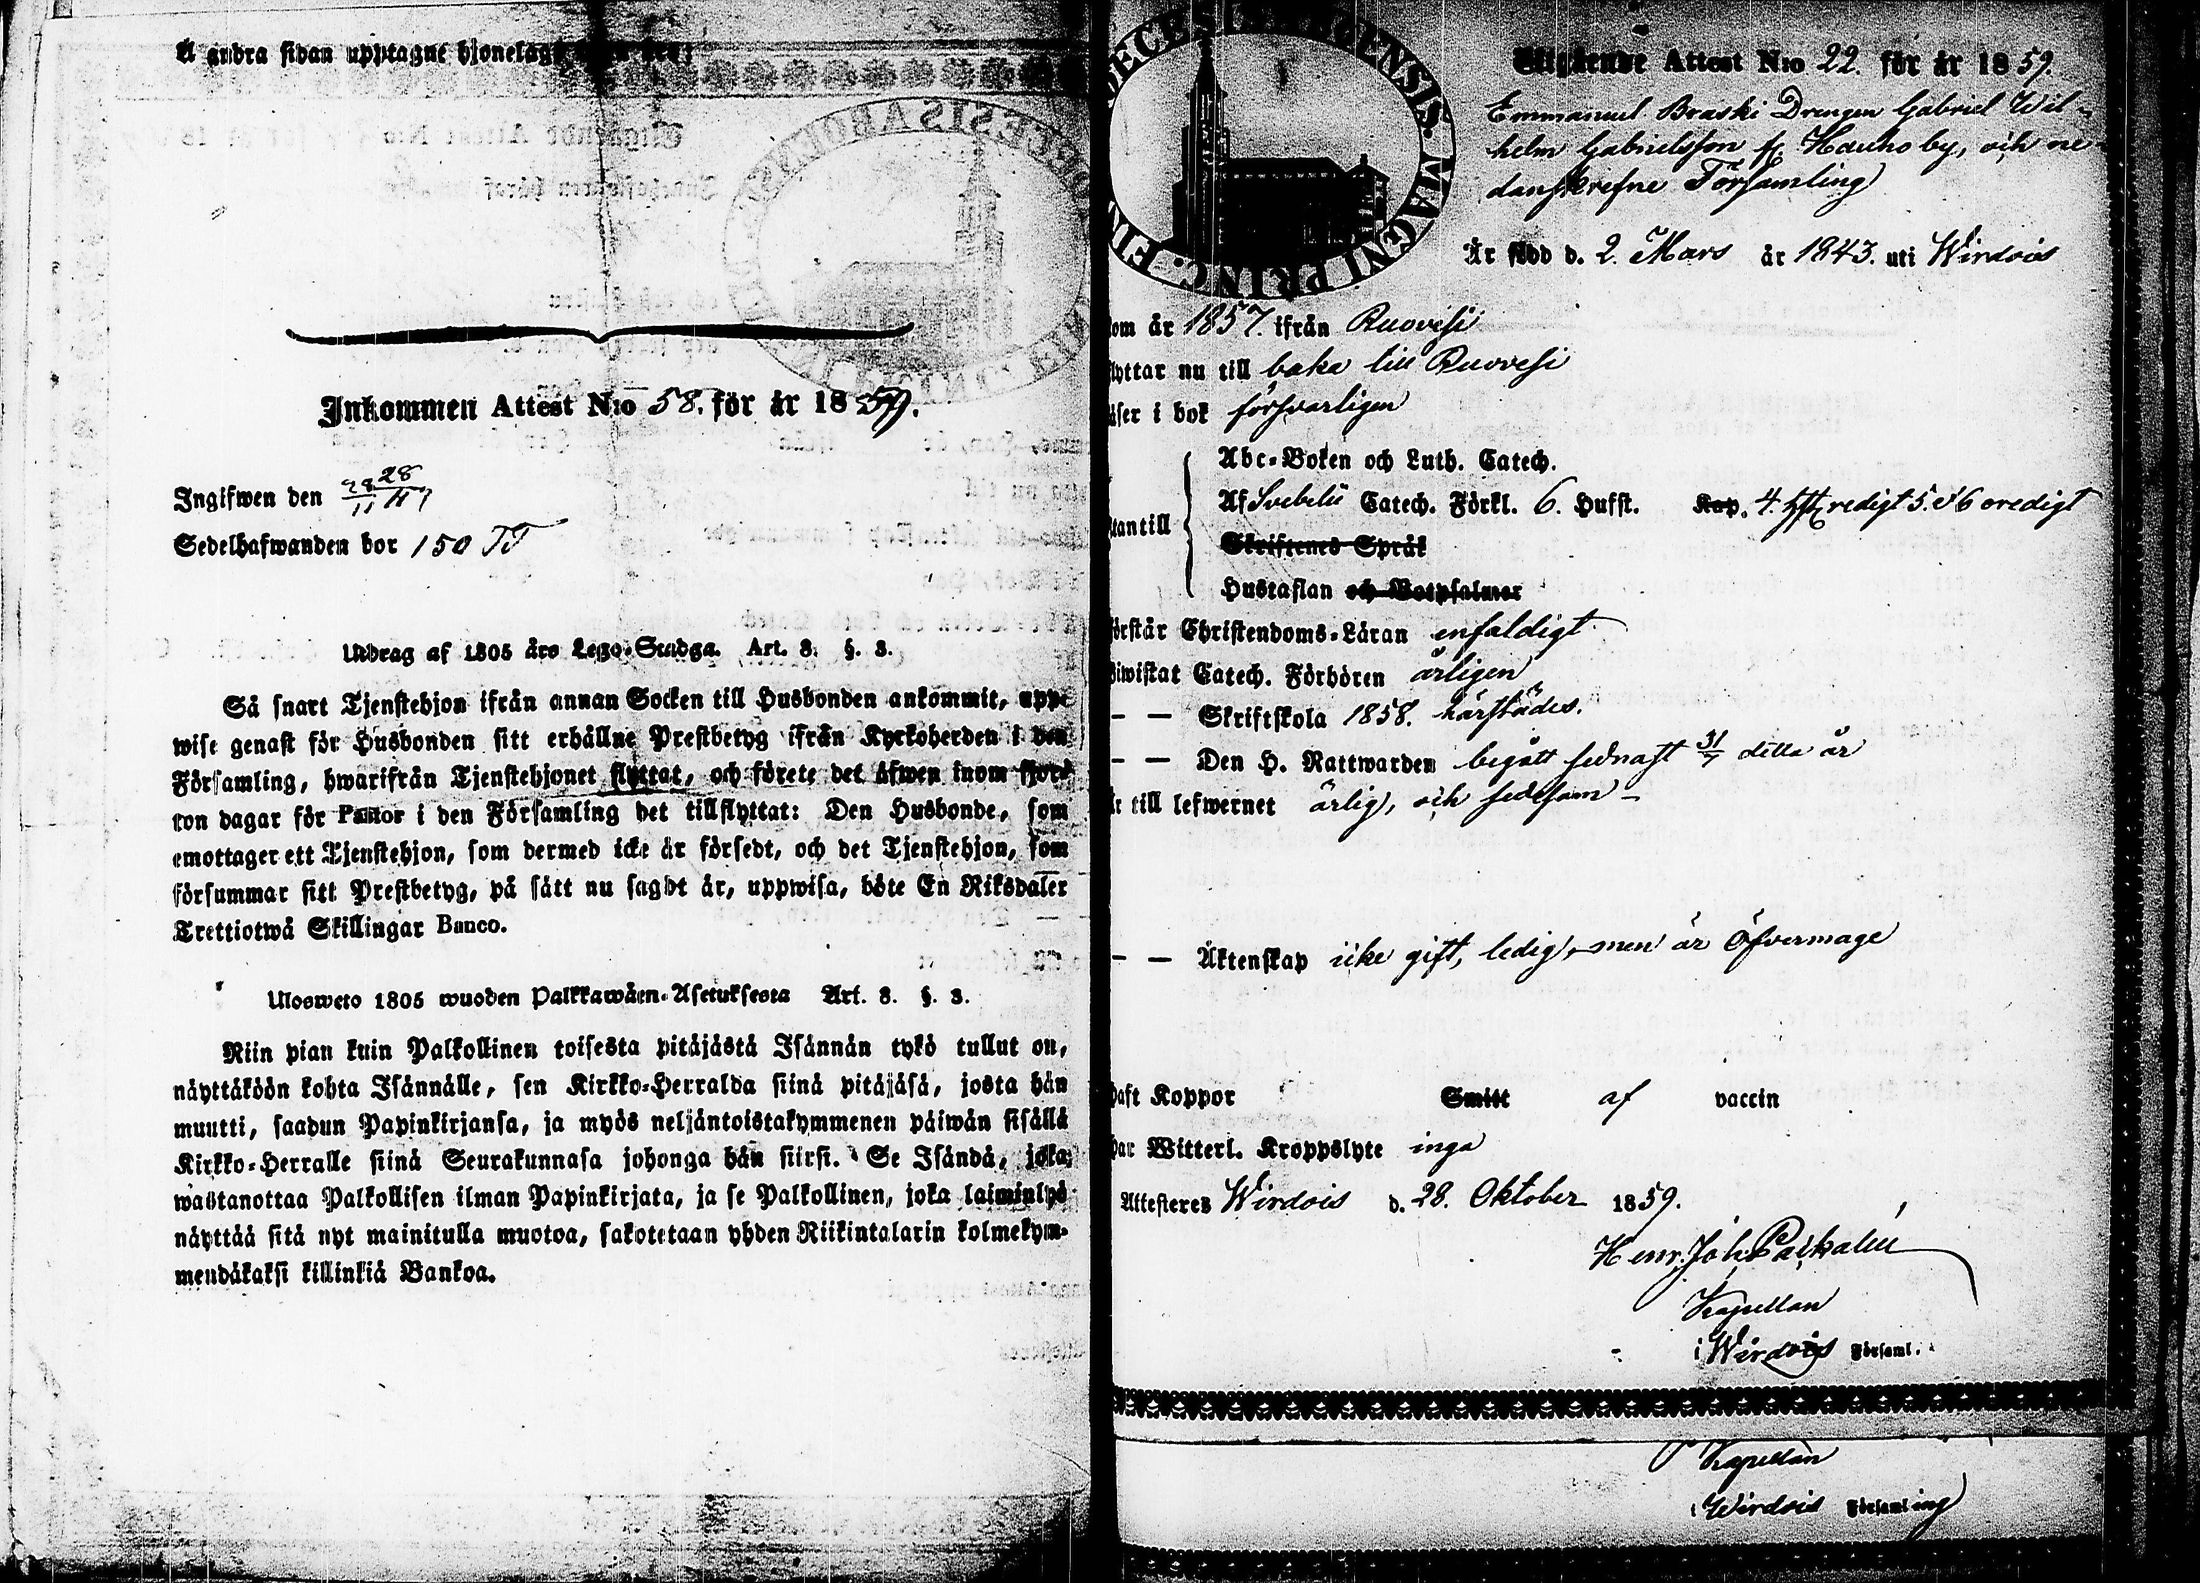 Å andra sidan upptagne hjonelag
Inkommen Attest N:o 58. för år 1859.
Ingifwen den 28/11
Sedelhafwanden bor 150 TT
Utdrag af 1805 års Lego-Stadga. Art. 8. §. 3.
Så snart Tjenstehjon ifrån annan Socken till Husbonden ankommit, uppe
wise genast för Husbonden sitt erhållne Prestbetyg ifrån Kyrkoherden i den
Församling, hwarifrån Tjenstehjonet flyttat, och förete det äfwen inom fjor-
ton dagar för Pastor i den Församling det tillflyttat: Den Husbonde, som
emottager ett Tjenstehjon, som dermed icke är försedt, och det Tjenstehjon, som
försummar sitt Prestbetyg, på sätt nu sagdt är, uppwisa, böte En Riksdaler
Trettiotwå Skillingar Banco.
Ulosweto 1805 wuoden Palkkawäen-Asetuksesta Art. 8. §. 3.
Niin pian kuin Palkollinen toisesta pitäjästä Isännän tykö tullut on,
näyttäköön kohta Isännälle, sen Kirkko-Herralda siinä pitäjäsä, josta hän
muutti, saadun Papinkirjansa, ja myös neljäntoistakymmenen päiwän sisällä
Kirkko-Herralle siinä Seurakunnasa johonga hän siirsi. Se Isändä, joka
wastanottaa Palkollisen ilman Papinkirjata, ja se Palkollinen, joka laiminlyö
näyttää sitä nyt mainitulla muotoa, sakotetaan yhden Riikintalarin kolmekym-
mendäkaksi killinkiä Bankoa.
DECESIS ABOENSIS. MAGNI PRINC. FIN
Utgående Attest N:o 22. för år 1859.
Emmanuel Braski Drengen Gabriel Wil-
helm Gabrielsson fr Hauho by, och ne-
danskrefne Församling
Är född d. 2. Mars år 1843. uti Wirdois
om år 1857. ifrån Ruovesi
lyttar nu till baka till Ruovesi
äser i bok försvarligen
Abc-Boken och Luth. Catech.
Af Svebelii Catech. Förkl. 6. Hufst. Kap. 4. redigt 5. & 6 oredigt
utantill
Skriftenes Språk
Hustaflan och Botpsalmer
örstår Christendoms-Läran enfaldigt
iwistat Catech. Förhören årligen
— — Skriftskola 1858. härstädes.
— — Den H. Nattwarden begått sednast 31/7 detta år
är till lefwernet ärlig, och sedesam
— — Äktenskap icke gift, ledig, men är Öfvermage
haft Koppor Smitt af vaccin
har Witterl. Kroppslyte inga
Attesteres Wirdois d. 28. Oktober 1859.
Henr. Joh.
Kapellan
i Wirdois Församl.
Kapellan
i Wirdois Församling